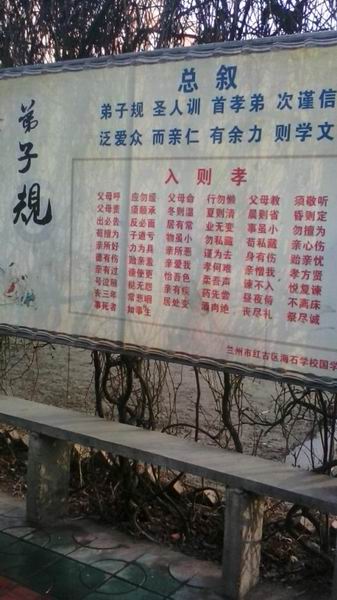 弟子規
总叙
弟子规 圣人训 首孝弟 次谨信
泛爱众 而亲仁 有余力 则学文
入则孝
父母呼 应勿缓 父母命 行勿懒 父母教 须敬听
父母责 须顺承 冬则温 夏则清 晨则省 昏则定
出必告 反必面 居有常 业无变 事虽小 勿擅为
苟擅为 子道亏 物虽小 勿私藏 苟私藏 亲心伤
亲所好 力为具 亲所恶 谨为去 身有伤 贻亲忧
德有伤 贻亲羞 亲爱我 孝何难 亲憎我 孝方贤
亲有过 谏使更 怡吾色 柔吾声 谏不入 悦复谏
号泣随 挞无怨 亲有疾 药先尝 昼夜侍 不离床
丧三年 常悲咽 居处变 酒肉绝 丧尽礼 祭尽诚
事死者 如事生
兰州市红古区海石学校国学